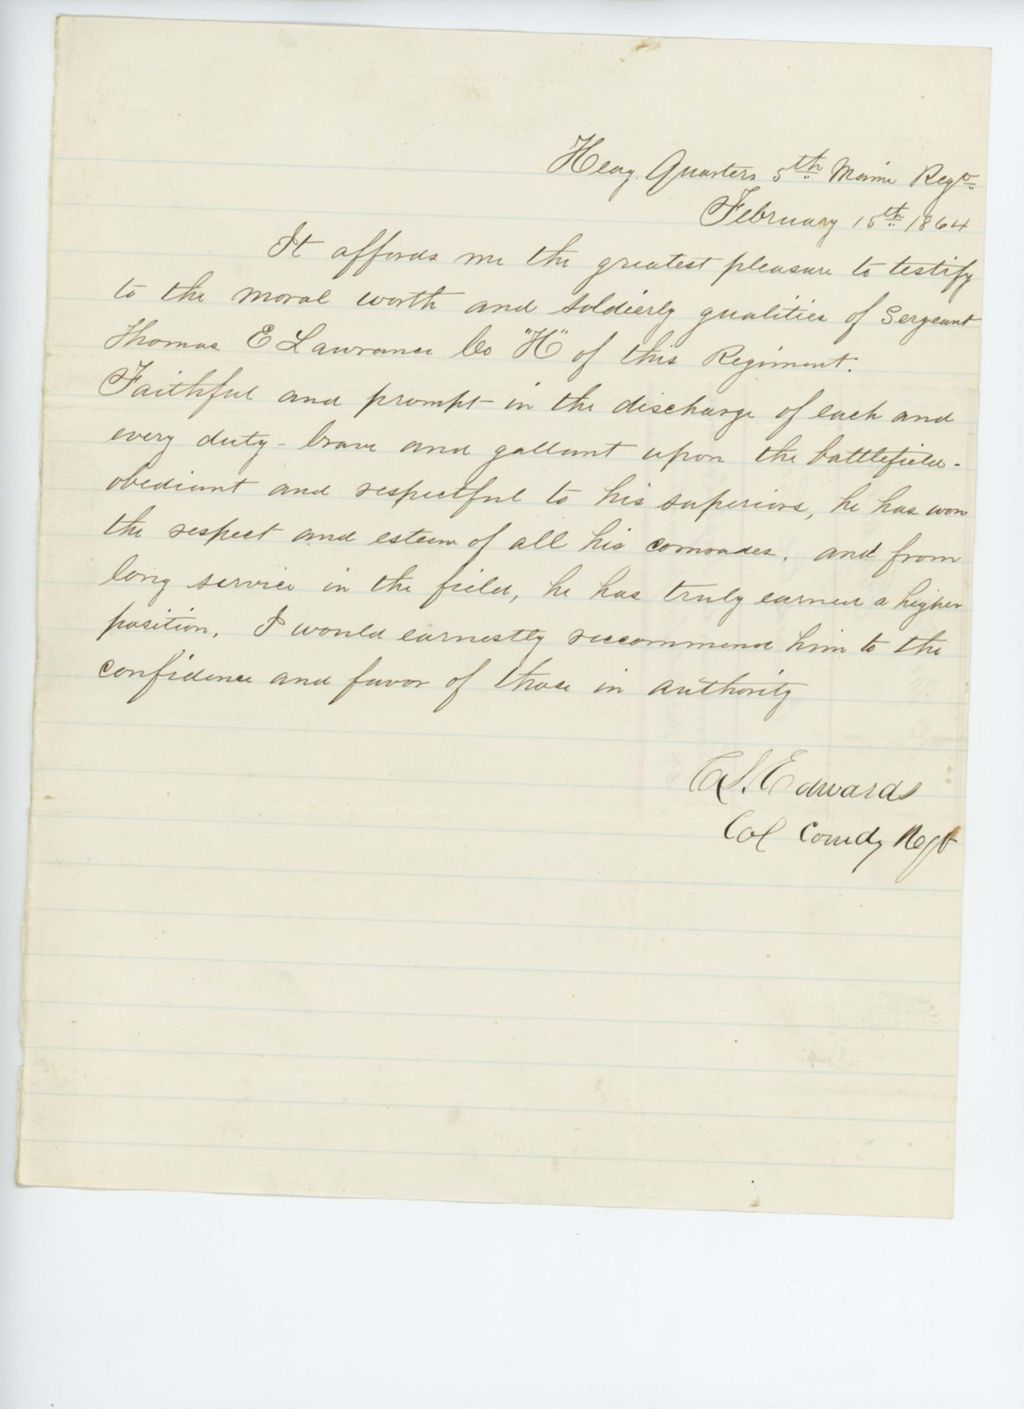 Head Quarters 5th Maine Regt.
February 15th 1864
It affords me the greatest pleasure to testify
to the moral worth and soldierly qualities of Sergeant
Thomas E Lawrance Co "H" of this Regiment.
Faithful and prompt in the discharge of each and
every duty - brave and gallant upon the battlefield -
obediant and respectful to his superiors, he has won
the respect and esteem of all his comrades. and from
long service in the field, he has truly earned a higher
position. I would earnestly reccommend him to the
confidence and favor of those in authority
C.S. Edwards
Col Comdg Regt